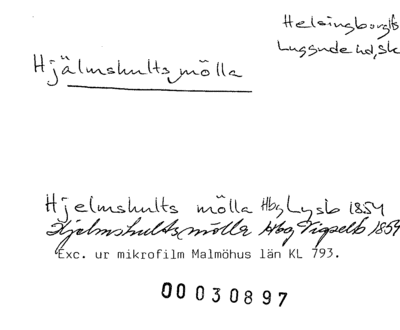 Helsingborgs
Luggude hd, Sk
Hjälmshults mölla
Hjelmshults mölla Hbg Lysb 1854
Hjelmshults mölla Hbg Vigselb 1854
Exc. ur mikrofilm Malmöhus län KL 793.
00030897